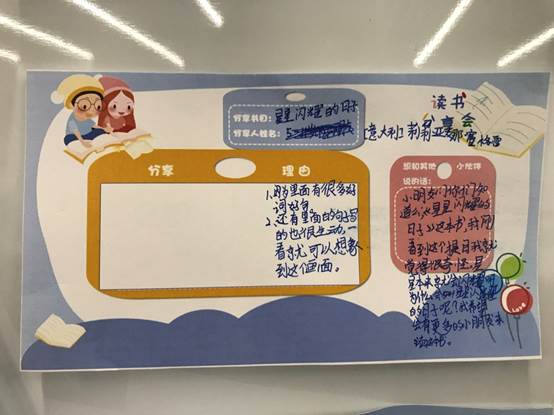 读书
分享会
分享书目：星星闪耀的日子
分享人姓名：
意大利 莉莉亚娜
分享 理由
1.因为里面有很多好
词好句。
2.还有里面的句子写
的也很生动，一
看就可以想象
到这个画面。
想和其他小伙伴
说的话：
小朋友们你们知
道么这星星闪耀的
日子这本书,我刚
看到这个题目我就
觉得很奇怪,星
星本来就会闪耀啊
为什么会叫星星闪耀
的日子呢？我希望
会有更多的小朋友来
Love